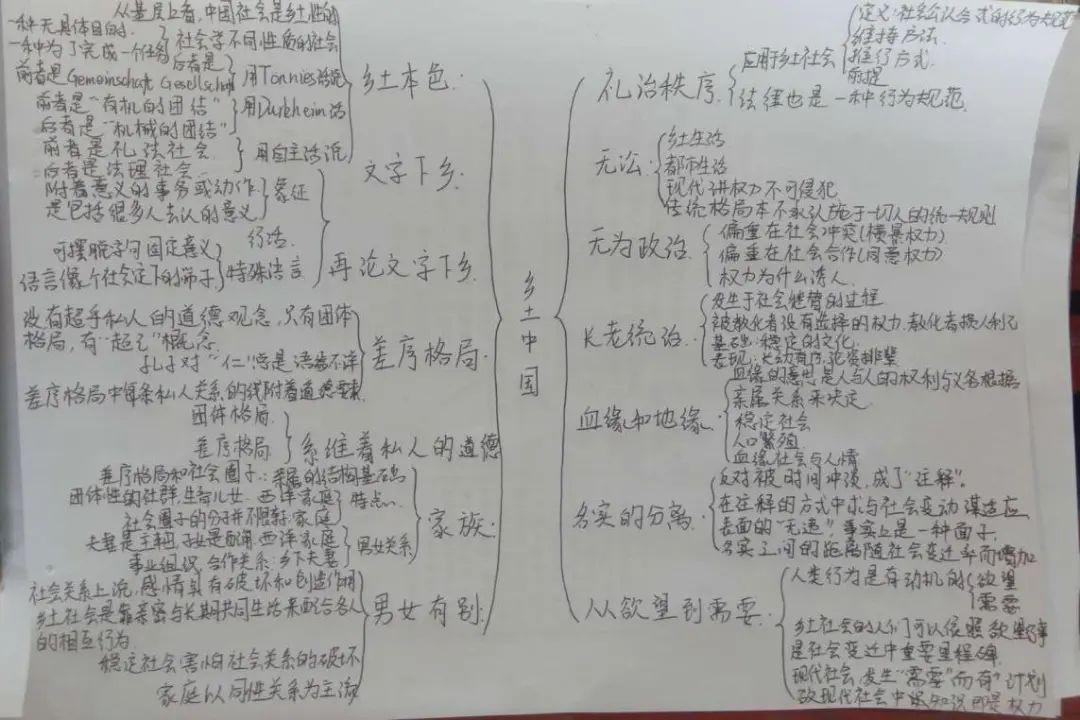 乡土中国
从基层上看,中国社会是乡土性的
一种无具体目的
一种为了完成一个任务
社会学不同性质的社会
乡土本色:
前者是Gemeinschaft Gesellschaft
后者是
用Tonnies话说
前者是“有机的团结”
后者是“机械的团结”
用Durkheim话
前者是礼法社会
后者是法理社会
用自主话说
文字下乡:
附着意义的事务或动作
是包括很多人去认的意义
象征
行话
可摆脱字句固定意义
语言像个社会定下的筛子
特殊语言
再论文字下乡:
没有超乎私人的道德观念,只有团体
格局,有“超己”概念
孔子对“仁”总是语焉不详
差序格局中每条私人关系的线附着道德要素
差序格局:
团体格局
差序格局
系维着私人的道德
差序格局和社会圈子:亲属的结构基础
团体性的社群,生育儿女 西洋家庭
特点
社会圈子的分子并不限于家庭
家族:
夫妻是主轴,子女是配角:西洋家庭
事业组织,合作关系:乡下夫妻
男女关系
社会关系上说,感情具有破坏和创造作用
乡土社会是靠亲密与长期共同生活来配合各人
的相互行为
男女有别:
稳定社会害怕社会关系的破坏
家庭以同性关系为主流
定义:社会公认合式的行为规范
维持办法
推行方式
前提
应用于乡土社会
礼治秩序:
法律也是一种行为规范
无讼:
乡土生活
都市生活
现代讲权力不可侵犯
传统格局本不承认施于一切人的统一规则
无为政治:
偏重在社会冲突(横暴权力)
偏重在社会合作(同意权力)
权力为什么诱人
长老统治:
发生于社会继替的过程
被教化者没有选择的权力,教化者损人利己
基础:稳定的文化
表现:长幼有序,论资排辈
血缘和地缘:
血缘的意思是人与人的权利与义务根据
亲属关系来决定
稳定社会
人口繁殖
血缘社会与人情
名实的分离:
反对被时间冲淡,成了“注释”。
在注释的方式中求与社会变动谋适应
表面的“无违”事实上是一种面子
名实之间的距离随社会变迁率而增加
从欲望到需要:
人类行为是有动机的
欲望
需要
乡土社会的人们可以依照欲望行事
是社会变迁中重要里程碑
现代社会,发生“需要”而有“计划
故现代社会中知识即是权力